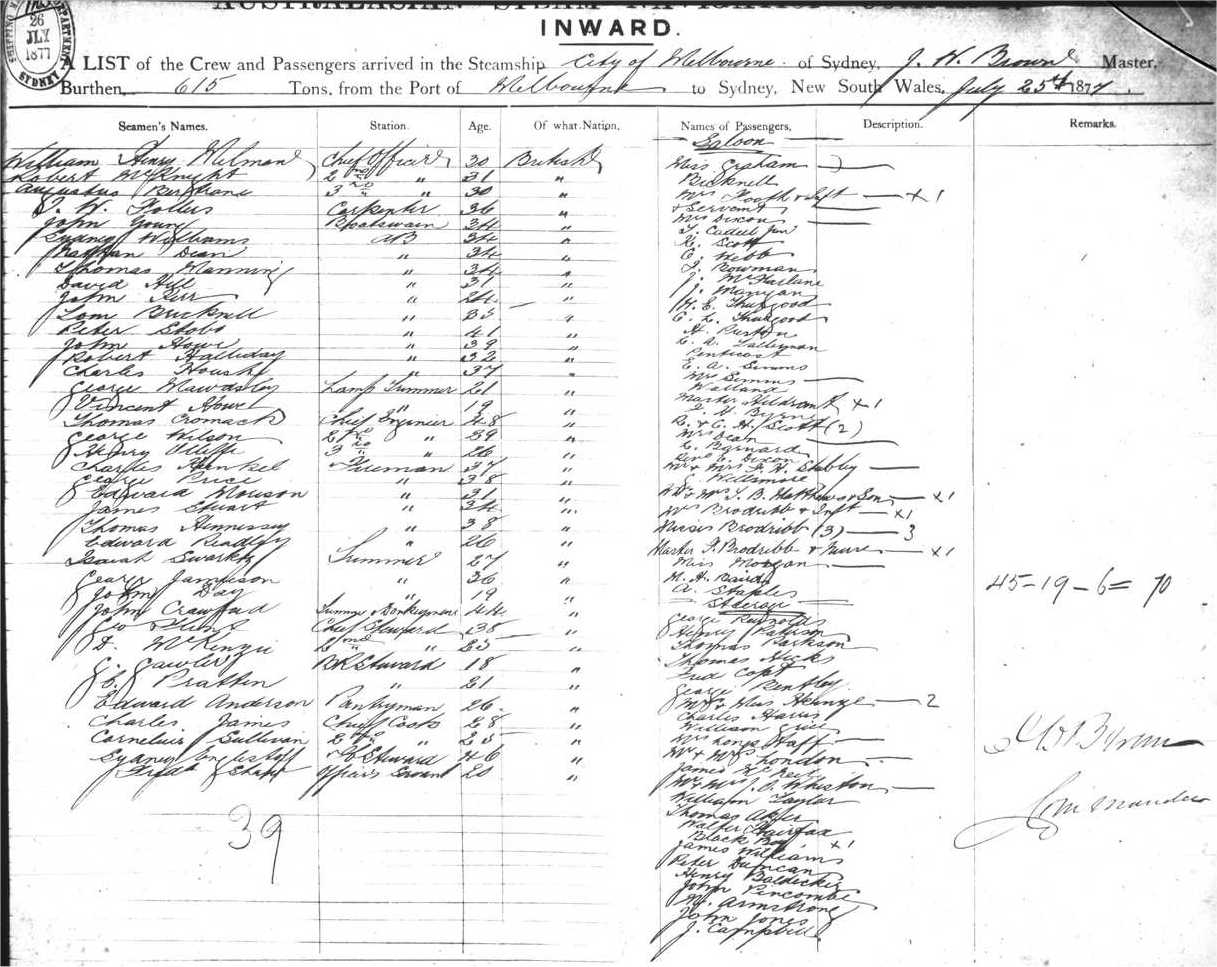 AUSTRALASIAN STEAM NAVIGATION
INWARD.
SHIPPING
26
JLY
1877
SYDNEY
A LIST of the Crew and Passengers arrived in the Steamship City of Melbourne of Sydney, J. H. Brown Master,
Burthen, 615 Tons, from the Port of Melbourne to Sydney, New South Wales, July 25th 1877.
Seamen's Names. Station. Age. Of what Nation.
William Henry Milman Chief Officer 30 British
Robert McKnight 2nd " 31 "
Augustus 3rd " 30 "
Carpenter 36 "
John Boatswain 34 "
Sydney Williams AB 34 "
Dean " 34 "
Thomas Manning " 34 "
David Hill " 31 "
John Kerr " 24 "
Tom Bricknell " 35 "
Peter Stobs " 41 "
John Howe " 39 "
Robert Halliday " 32 "
Charles " 37 "
George Mawdsley Lamp Trimmer 21 "
Vincent " 19 "
Thomas Cromack Chief Engineer 48 "
George Wilson 2nd " 39 "
Henry 3rd " 26 "
Charles Henkel Fireman 37 "
George Price " 38 "
Edward " 31 "
James Stuart " 34 "
Thomas Hennessy " 38 "
Edward " 26 "
Trimmer 27 "
George Jamieson " 36 "
John Day " 19 "
John Crawford Trimmer & Donkeyman 44 "
Geo Chief Steward 38 "
D. McKenzie 2nd " 25 "
G. Gawler BR Steward 18 "
Pratten " 21 "
Edward Anderson Pantryman 26 "
Charles James Chief Cook 28 "
Cornelius Sullivan 2nd " 25 "
Sydney Steward 46 "
Fredk Sharp Officers Servant 20 "
39
Names of Passengers. Description. Remarks.
Saloon
Miss Graham
Bicknell
Mrs & Inft × 1
& Servant
Mrs Dixon
Jun
Scott
C. Webb
Bowman
J. McFarlane
J. Mangan
H. E. Thurgood
C. L. Thurgood
H. Burton
E. A.
Penticost
E. A. Simms
Mrs Simms
Master × 1
J. H. Byrne
R. & C. H. Scott (2)
Mrs Dean
Barnard
Revd E. Dixon
Mr & Mrs F. H.
Mr & Mrs T. B. Matthews & Son × 1
Mrs Brodribb & Inft × 1
Misses Brodribb (3) 3
Master F. Brodribb & Nurse × 1
Miss Morgan
H. H. Baird
A. Staples
Steerage
George Reynolds
Henry Paterson
Thomas Parkson
Thomas Hicks
Fred
George Bentley
Mrs & Miss 2
Charles Harris
William
Mrs
Mr & Mrs London
James
Mr & Mrs J. O. Whiston
William Taylor
Thomas
Walter Fairfax
Black Boy × 1
James Williams
Peter Duncan
Henry
John Pincombe
M. Armstrong
John Jones
J. Campbell
45 - 19 - 6 = 70
Commander